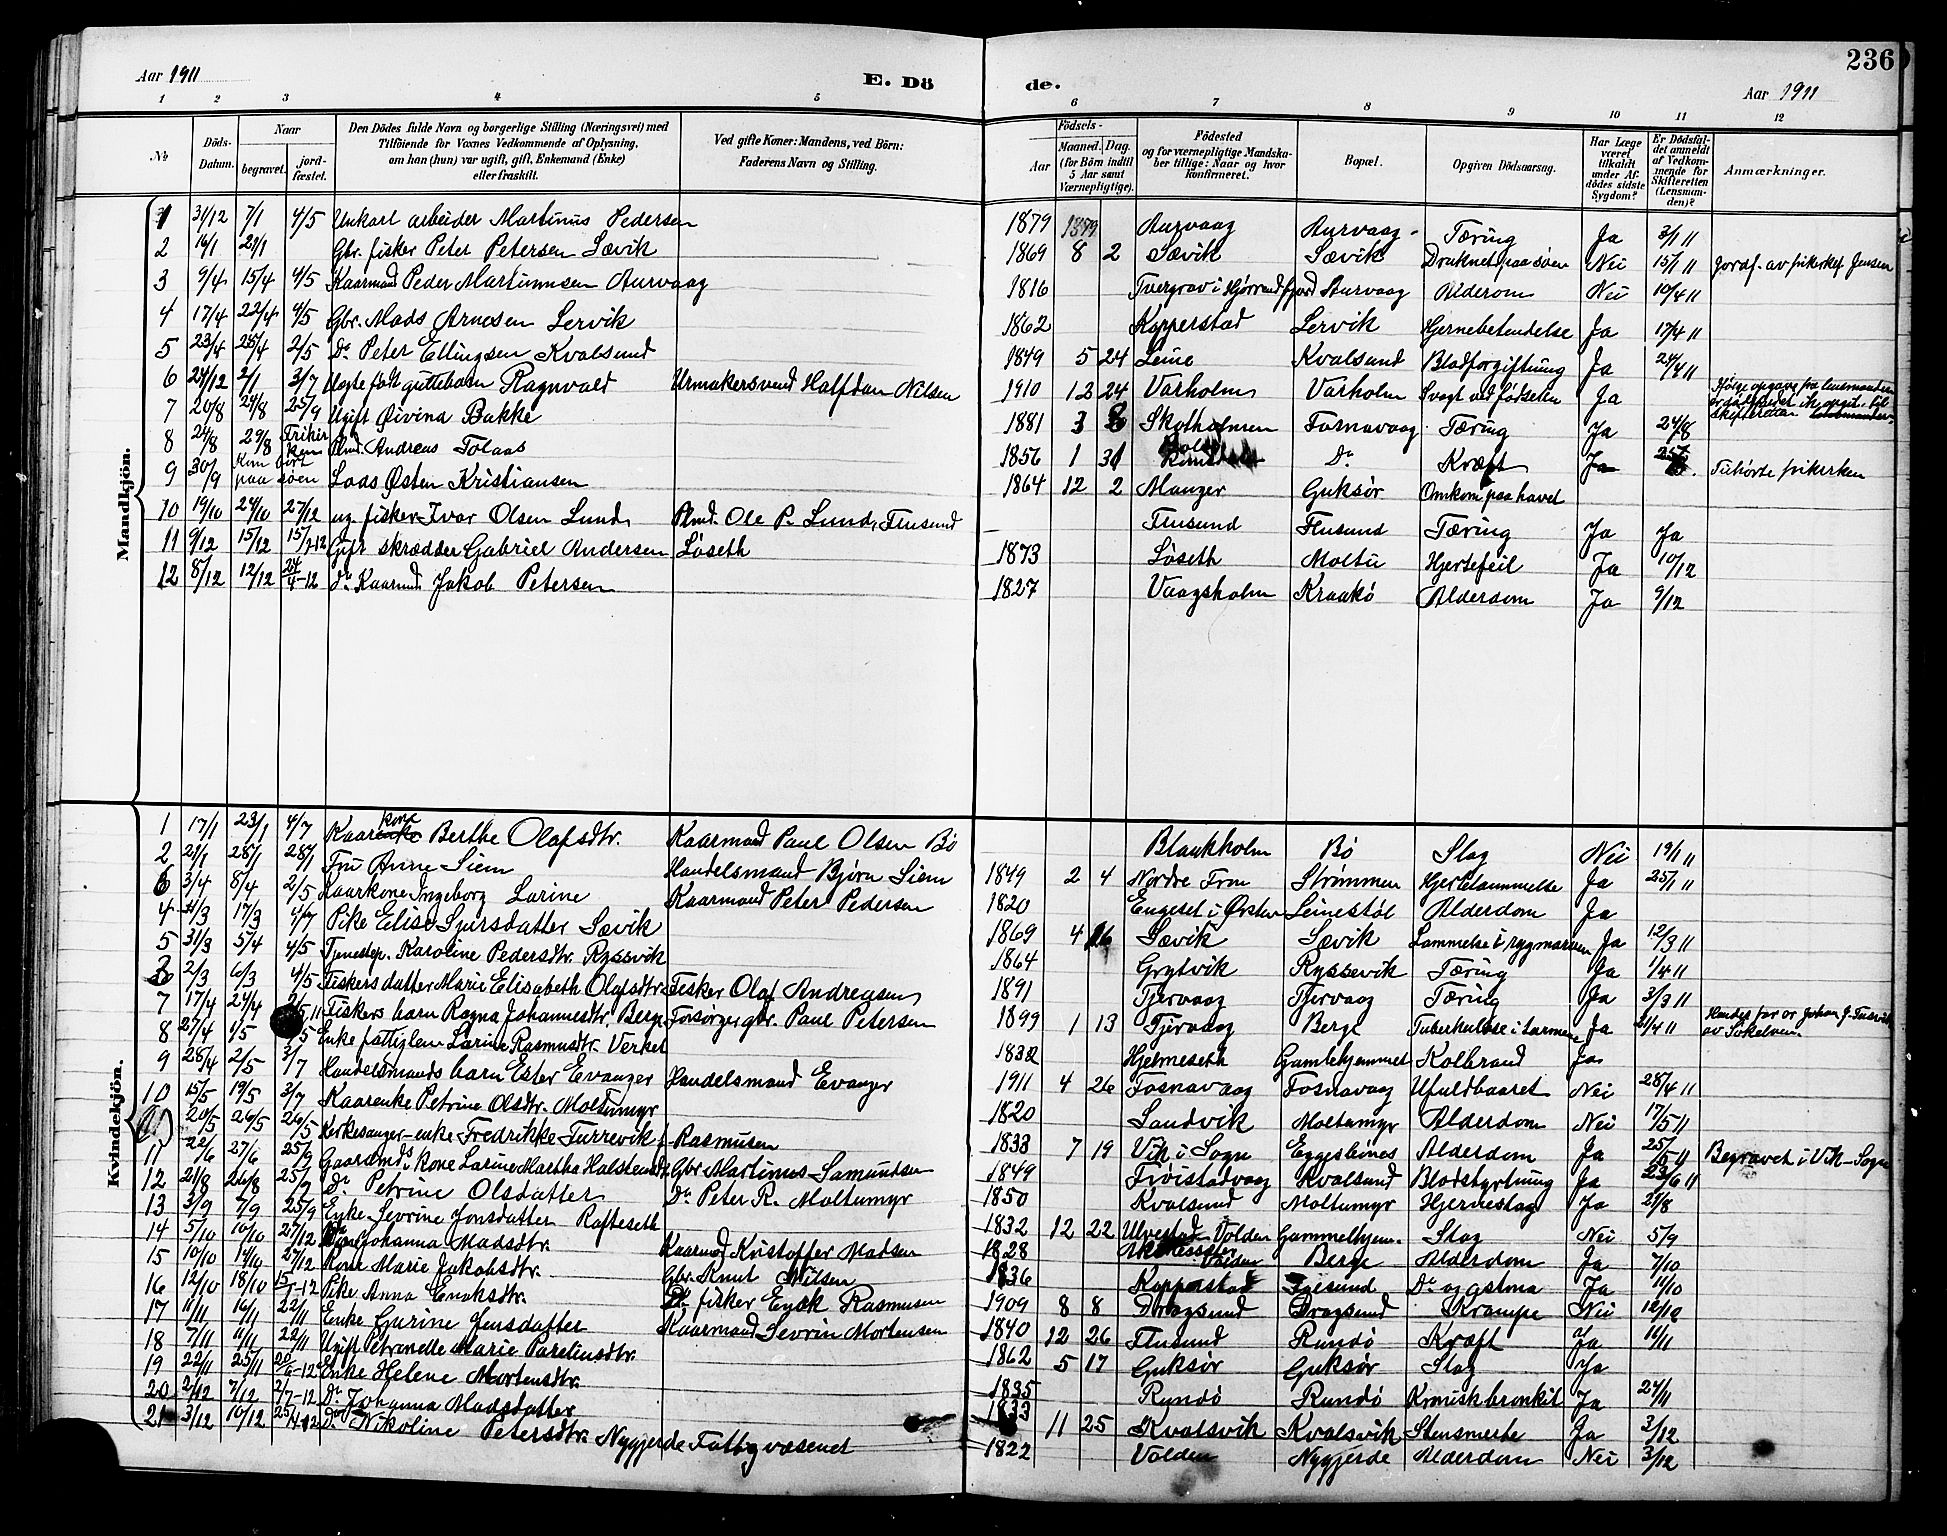 236
Aar 1911
E. Dö
de.
Aar 1911
1 2 3 4 5 6 7 8 9 10 11 12
No
Döds-Datum.
Naar
begravet.
jord-fæstet.
Den Dödes fulde Navn og borgerlige Stilling (Næringsvei) med
Tilföiende for Voxnes Vedkommende af Oplysning,
om han (hun) var ugift, gift, Enkemand (Enke)
eller fraskilt.
Ved gifte Koner: Mandens, ved Börn:
Faderens Navn og Stilling.
Födsels-
Aar
Maaned. Dag.
(for Börn indtil
5 Aar samt
Værnepligtige).
Födested
og for værnepligtige Mandska-
ber tillige: Naar og hvor
konfirmeret.
Bopæl.
Opgiven Dödsaarsag.
Har Læge
været
tilkaldt
under Af-
dödes sidste
Sygdom?
Er Dödsfal-
det anmeldt
af Vedkom-
mende for
Skifteretten
(Lensman-
den)?
Anmærkninger.
Mandkjön.
1 31/12 7/1 4/5 Unkarl arbeider Martinus Pedersen 1879 Aurvaag Aurvaag Tæring Ja 3/1 11
2 16/1 29/1 Gbr. fisker Peter Petersen Sævik 1869 8 2 Sævik Sævik Druknet paa søen Nei 15/1 11 Jordf. av frikirkef Jensen
3 9/4 15/4 4/5 Kaarmand Peder Martinusen Aurvaag 1816 Tvergrov i Hjørrendfjord Aurvaag Alderdom Nei 10/4 11
4 17/4 22/4 4/5 Gbr. Mads Arnesen Lervik 1862 Kopperstad Lervik Hjernebetendelse Ja 17/4 11
5 23/4 28/4 2/5 Do Peter Ellingsen Kvalsund 1849 5 24 Leine Kvalsund Blodforgiftning Ja 24/4 11
6 24/12 2/1 3/7 Uegte født guttebarn Ragnvald Urmakersvend Halfdan Nilsen 1910 12 24 Varholm Varholm Svagt ved fødselen Ja
7 20/8 24/8 25/9 Ugift Øivina Bakke 1881 3 Skotholmen Fosnavaag Tæring Ja 24/8
8 24/8 29/8 Frikirken Plmd. Andreas Tolaas 1856 1 31 Do Kræft Ja Tilhørte frikirken
9 30/9 Kom bort paa søen Lods Østen Kristiansen 1864 12 2 Manger Guksør Omkom paa havet
10 19/10 24/10 27/12 ug. fisker Ivar Olsen Lund Plmd. Ole P. Lund, Flusund Flusund Flusund Tæring Ja Ja
11 9/12 15/12 15/2-12 Gift skrædder Gabriel Andersen Løseth 1873 Løseth Moltu Hjertefeil Ja 10/12
12 8/12 12/12 24/4-12 Do Kaarmd. Jakob Petersen 1827 Vaagsholm Kraakø Alderdom Ja 9/12
Kvindekjön.
1 17/1 23/1 4/7 Kaarkone Berthe Olafsdtr. Kaarmand Paul Olsen Bø Blankholm Bø Slag Nei 19/1 11
2 21/1 28/1 28/1 Fru Anne Siem Handelsmand Bjørn Siem 1849 2 4 Nordre Fron Strømmen Hjertelammelse Ja 25/1 11
6 3/4 8/4 2/5 Kaarkone Ingeborg Larine Kaarmand Peter Pedersen 1820 Engeset i Ørsten Leinestøl Alderdom Ja
4 11/3 17/3 4/7 Pike Elise Sjursdatter Sævik 1869 4 16 Sævik Sævik Lammelse i rygmarven Ja 12/3 11
5 31/3 5/4 4/5 Tjenestep. Karoline Pedersdtr. Ryssvik 1864 Grytvik Ryssevik Tæring Ja 1/4 11
3 2/3 6/3 4/5 Fiskers datter Marie Elisabeth Olafsdtr. Fisker Olaf Andreasen 1891 Tjervaag Tjervaag Tæring Ja 3/3 11
7 17/4 24/4 Fiskers barn Ragna Johannesdtr. Berge Forsørger gbr. Paul Petersen 1899 1 13 Tjervaag Berge Tuberkulose i tarmene Ja 21/4 11
8 27/4 1/5 Enke fattiglem Larine Rasmusdtr. Verket 1832 Hjelmeseth Gamlehjemmet Kolbrand Ja
9 28/4 2/5 3/7 Handelsmands barn Ester Evanger Handelsmand Evanger 1911 4 26 Fosnavaag Fosnavaag Ufuldbaaret Nei 28/4 11
10 15/5 19/5 3/7 Kaarenke Petrine Olsdtr. Moltumyr 1820 Sandvik Moltumyr Alderdom Nei 17/5 11
20/5 26/5 26/5 Kirkesanger-enke Fredrikke Turrevik f. Rasmusen 1833 7 19 Vik i Sogn Eggesbönes Alderdom Ja 25/5 11 Begravet i Vik-Sogn
11 22/6 27/6 25/9 Gaardmds kone Larine Martha Halsteinsdtr. Gbr. Martinus Samundsen 1849 Frøistadvaag Kvalsund Blodstyrtning Ja 23/6 11
12 21/8 26/8 25/9 Do Petrine Olsdatter Do Peter R. Moltumyr 1850 Kvalsund Moltumyr Hjerneslag Ja 21/8
13 3/9 7/9 25/9 Enke Sevrine Jonsdatter Rafteseth 1832 12 22 Ulvestad Volden Gammelhjem. Slag Nei 5/9
14 5/10 10/10 27/12 Kone Johanna Madsdtr. Kaarmd Kristoffer Madsen 1828 Volden Berge Alderdom Ja 7/10
15 10/10 14/10 27/12 Kone Marie Jakobsdtr. Gbr. Knut Nilsen 1836 Kopperstad Igesund Do og astma Ja 11/10
16 12/10 18/10 15/1-12 Pike Anna Eriksdtr. Do fisker Erik Rasmusen 1909 8 8 Dragsund Dragsund Krampe Nei 12/10
17 11/11 16/11 22/11 Enke Gurine Jensdatter Kaarmand Sevrin Mortensen 1840 12 26 Flusund Rundø Kræft Ja 16/11
18 7/11 11/11 22/11 Ugift Petronelle Marie Pareliusdtr. 1862 5 17 Guksør Guksør Slag Ja
19 22/11 25/11 20/6-12 Enke Helene Mortensdtr. 1835 Rundø Rundø Kronisk bronkit Ja 24/11
20 2/12 7/12 2/7-12 Do Johanna Madsdatter 1833 11 25 Kvalsvik Kvalsvik Stensmerte Ja 3/12
21 3/12 10/12 25/4-12 Do Nikoline Petersdtr. Nygjerde Fattigvæsenet 1822 Volden Nygjerde Alderdom Nei 3/12